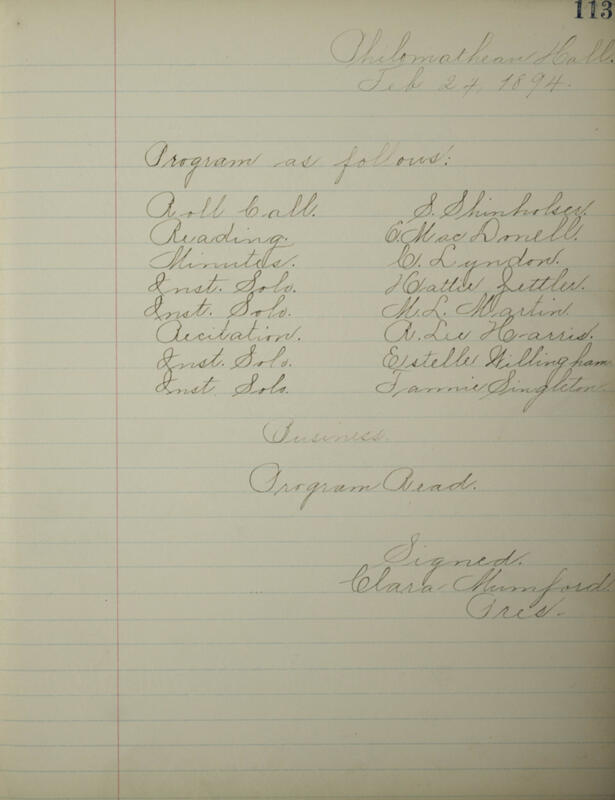 113
Philomathean Hall.
Feb 24, 1894.
Program as follows:
Roll Call. S. Shinholser.
Reading. E. MacDonell.
Minutes. C. Lyndon.
Inst. Solo. Hattie
Inst. Solo. M. L. Martin
Recitation. R. Lee Harris.
Inst. Solo. Estelle Willingham
Inst. Solo. Fannie Singleton.
Business.
Program Read.
Signed.
Clara Mumford.
Pres.